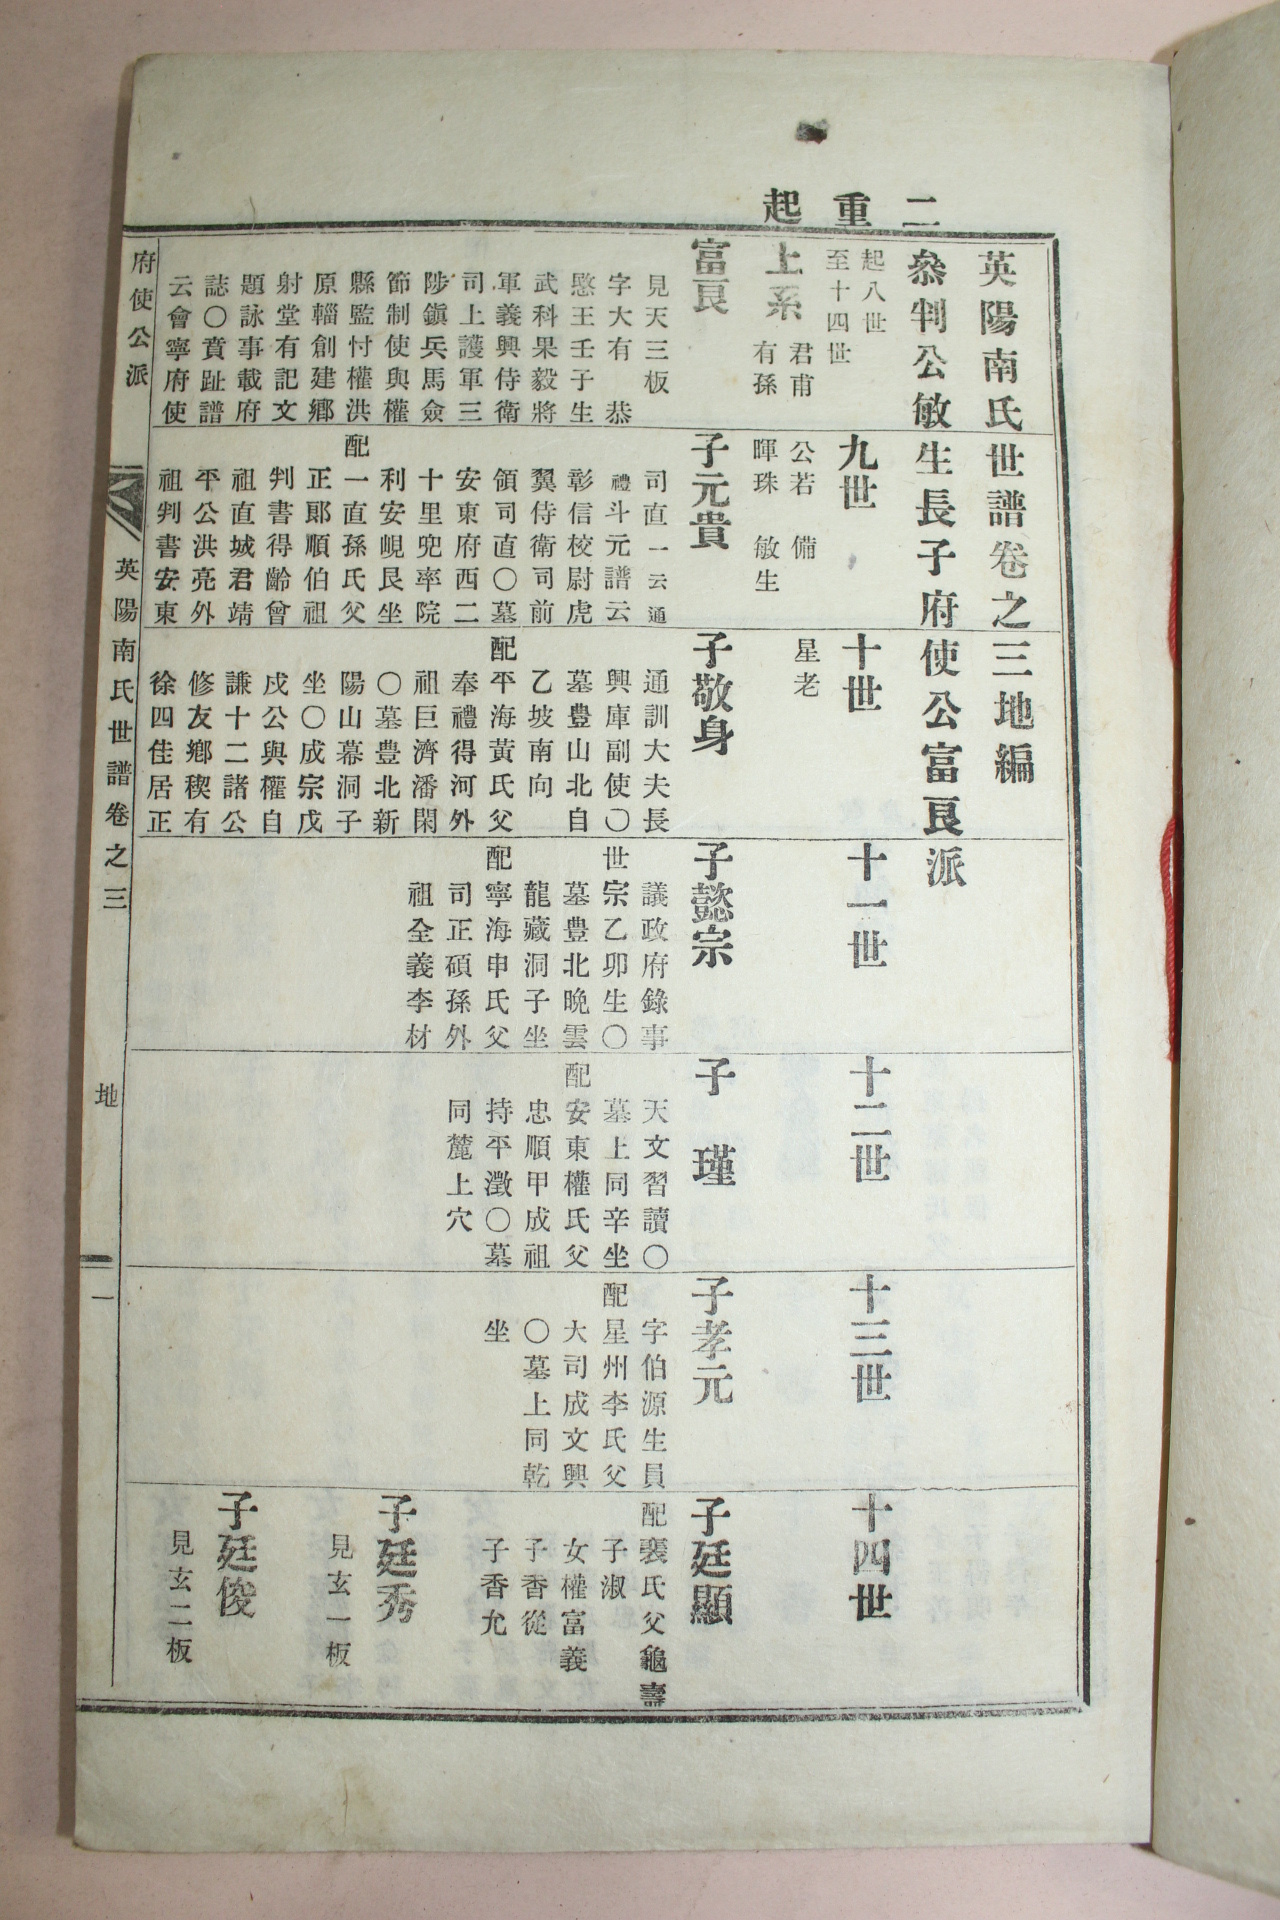 二重起
英陽南氏世譜卷之三地編
叅判公敏生長子府使公富良派
起八世
至十四世
九世
十世
十一世
十二世
十三世
十四世
上系
君甫
有孫
公若
暉珠
備
敏生
星老
富良
見天三板
字大有 恭
愍王壬子生
武科果毅將
軍義興侍衛
司上護軍三
陟鎭兵馬僉
節制使與權
縣監忖權洪
原輜創建鄕
射堂有記文
題詠事載府
誌〇賁趾譜
云會寧府使
子元貴
司直一云通
禮斗元譜云
彰信校尉虎
翼侍衛司前
領司直〇墓
安東府西二
十里兜率院
利安峴艮坐
配一直孫氏父
正郞順伯祖
判書得齡曾
祖直城君靖
平公洪亮外
祖判書安東
子敬身
通訓大夫長
興庫副使〇
墓豊山北自
乙坡南向
配平海黃氏父
奉禮得河外
祖巨濟潘閑
〇墓豊北新
陽山幕洞子
坐〇成宗戊
戌公與權自
謙十二諸公
修友鄕稧有
徐四佳居正
子懿宗
議政府錄事
世宗乙卯生〇
墓豊北晩雲
龍藏洞子坐
配寧海申氏父
司正碩孫外
祖全義李材
子瑾
天文習讀〇
墓上同辛坐
配安東權氏父
忠順甲成祖
持平澂〇墓
同麓上穴
子孝元
字伯源生員
配星州李氏父
大司成文興
〇墓上同乾
坐
子廷顯
配裵氏父龜壽
子淑
女權富義
子香從
子香允
子廷秀
見玄一板
子廷俊
見玄二板
府使公派
英陽南氏世譜卷之三
地
一